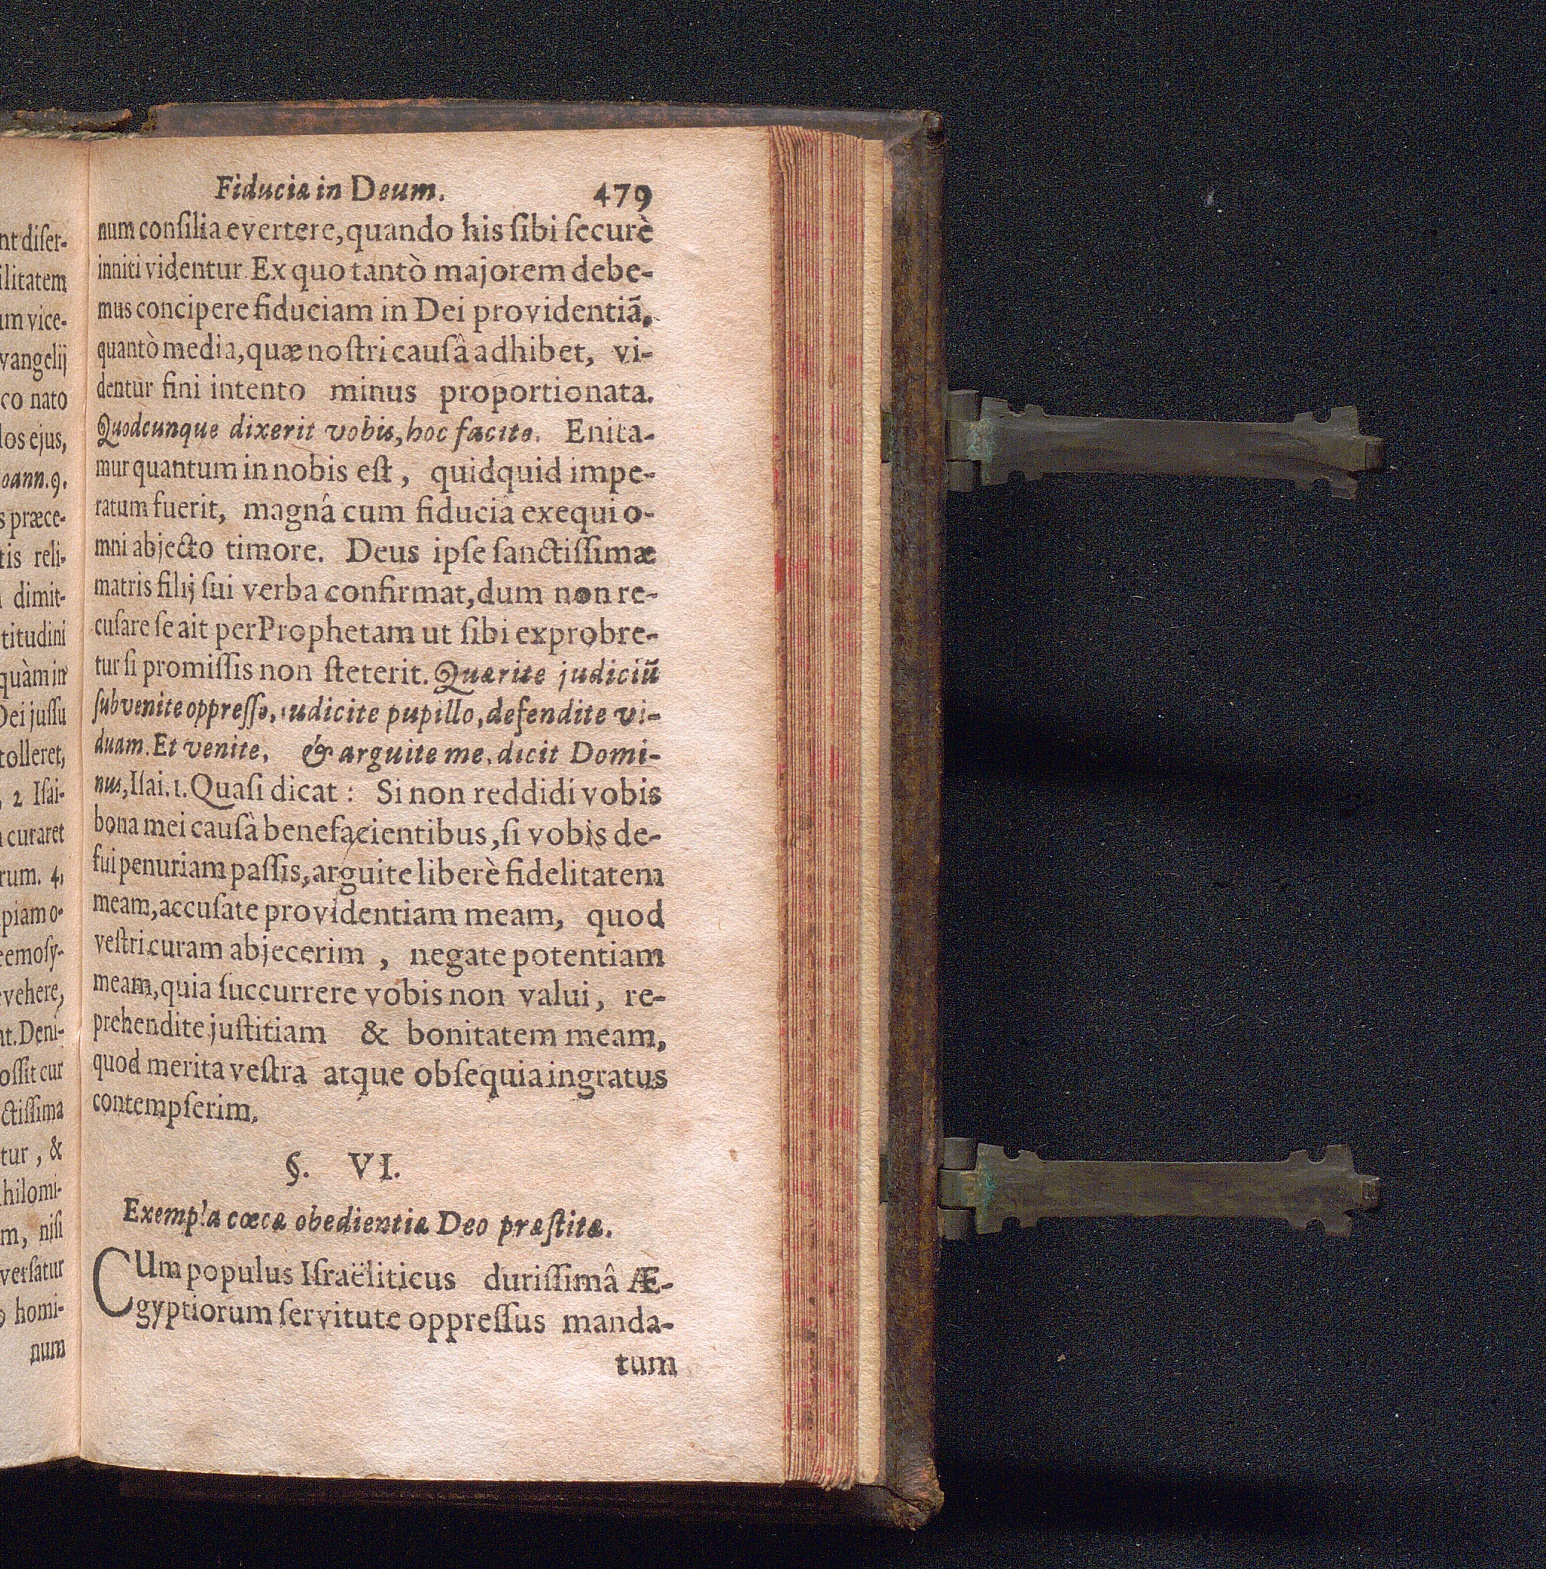 Fiduciæ in Deum. 479
num conſilia evertere, quando his ſibi ſecurè
inniti videntur Ex quo tantò majorem debe-
mus concipere fiduciam in Dei providentiã,
quantò media, quæ noſtri cauſâ adhibet, vi-
dentur fini intento minus proportionata.
Quodcunque dixerit vobis, hoc facite. Enita-
mur quantum in nobis eſt, quidquid impe-
ratum fuerit, magnâ cum fiduciâ exequi o-
mni abjecto timore. Deus ipſe ſanctiſſimæ
matris filij ſui verba confirmat, dum non re-
cuſare ſe ait per Prophetam ut ſibi exprobre-
tur ſi promiſſis non ſteterit. Quærite judiciũ
ſubvenite oppreſſo, iudicite pupillo, defendite vi-
duam. Et venite, & arguite me, dicit Domi-
nus, Iſai. 1. Quaſi dicat : Si non reddidi vobis
bona mei cauſâ benefacientibus, ſi vobis de-
fui penuriam paſſis, arguite liberè fidelitatem
meam, accuſate providentiam meam, quod
veſtri curam abjecerim , negate potentiam
meam, quia ſuccurrere vobis non valui, re-
prehendite juſtitiam & bonitatem meam,
quod merita veſtra atque obſequia ingratus
contempſerim.
§. VI.
Exempla cœcæ obedientiæ Deo præſtitæ.
CUm populus Iſraëliticus duriſſimâ Æ-
gyptiorum ſervitute oppreſſus manda-
tum